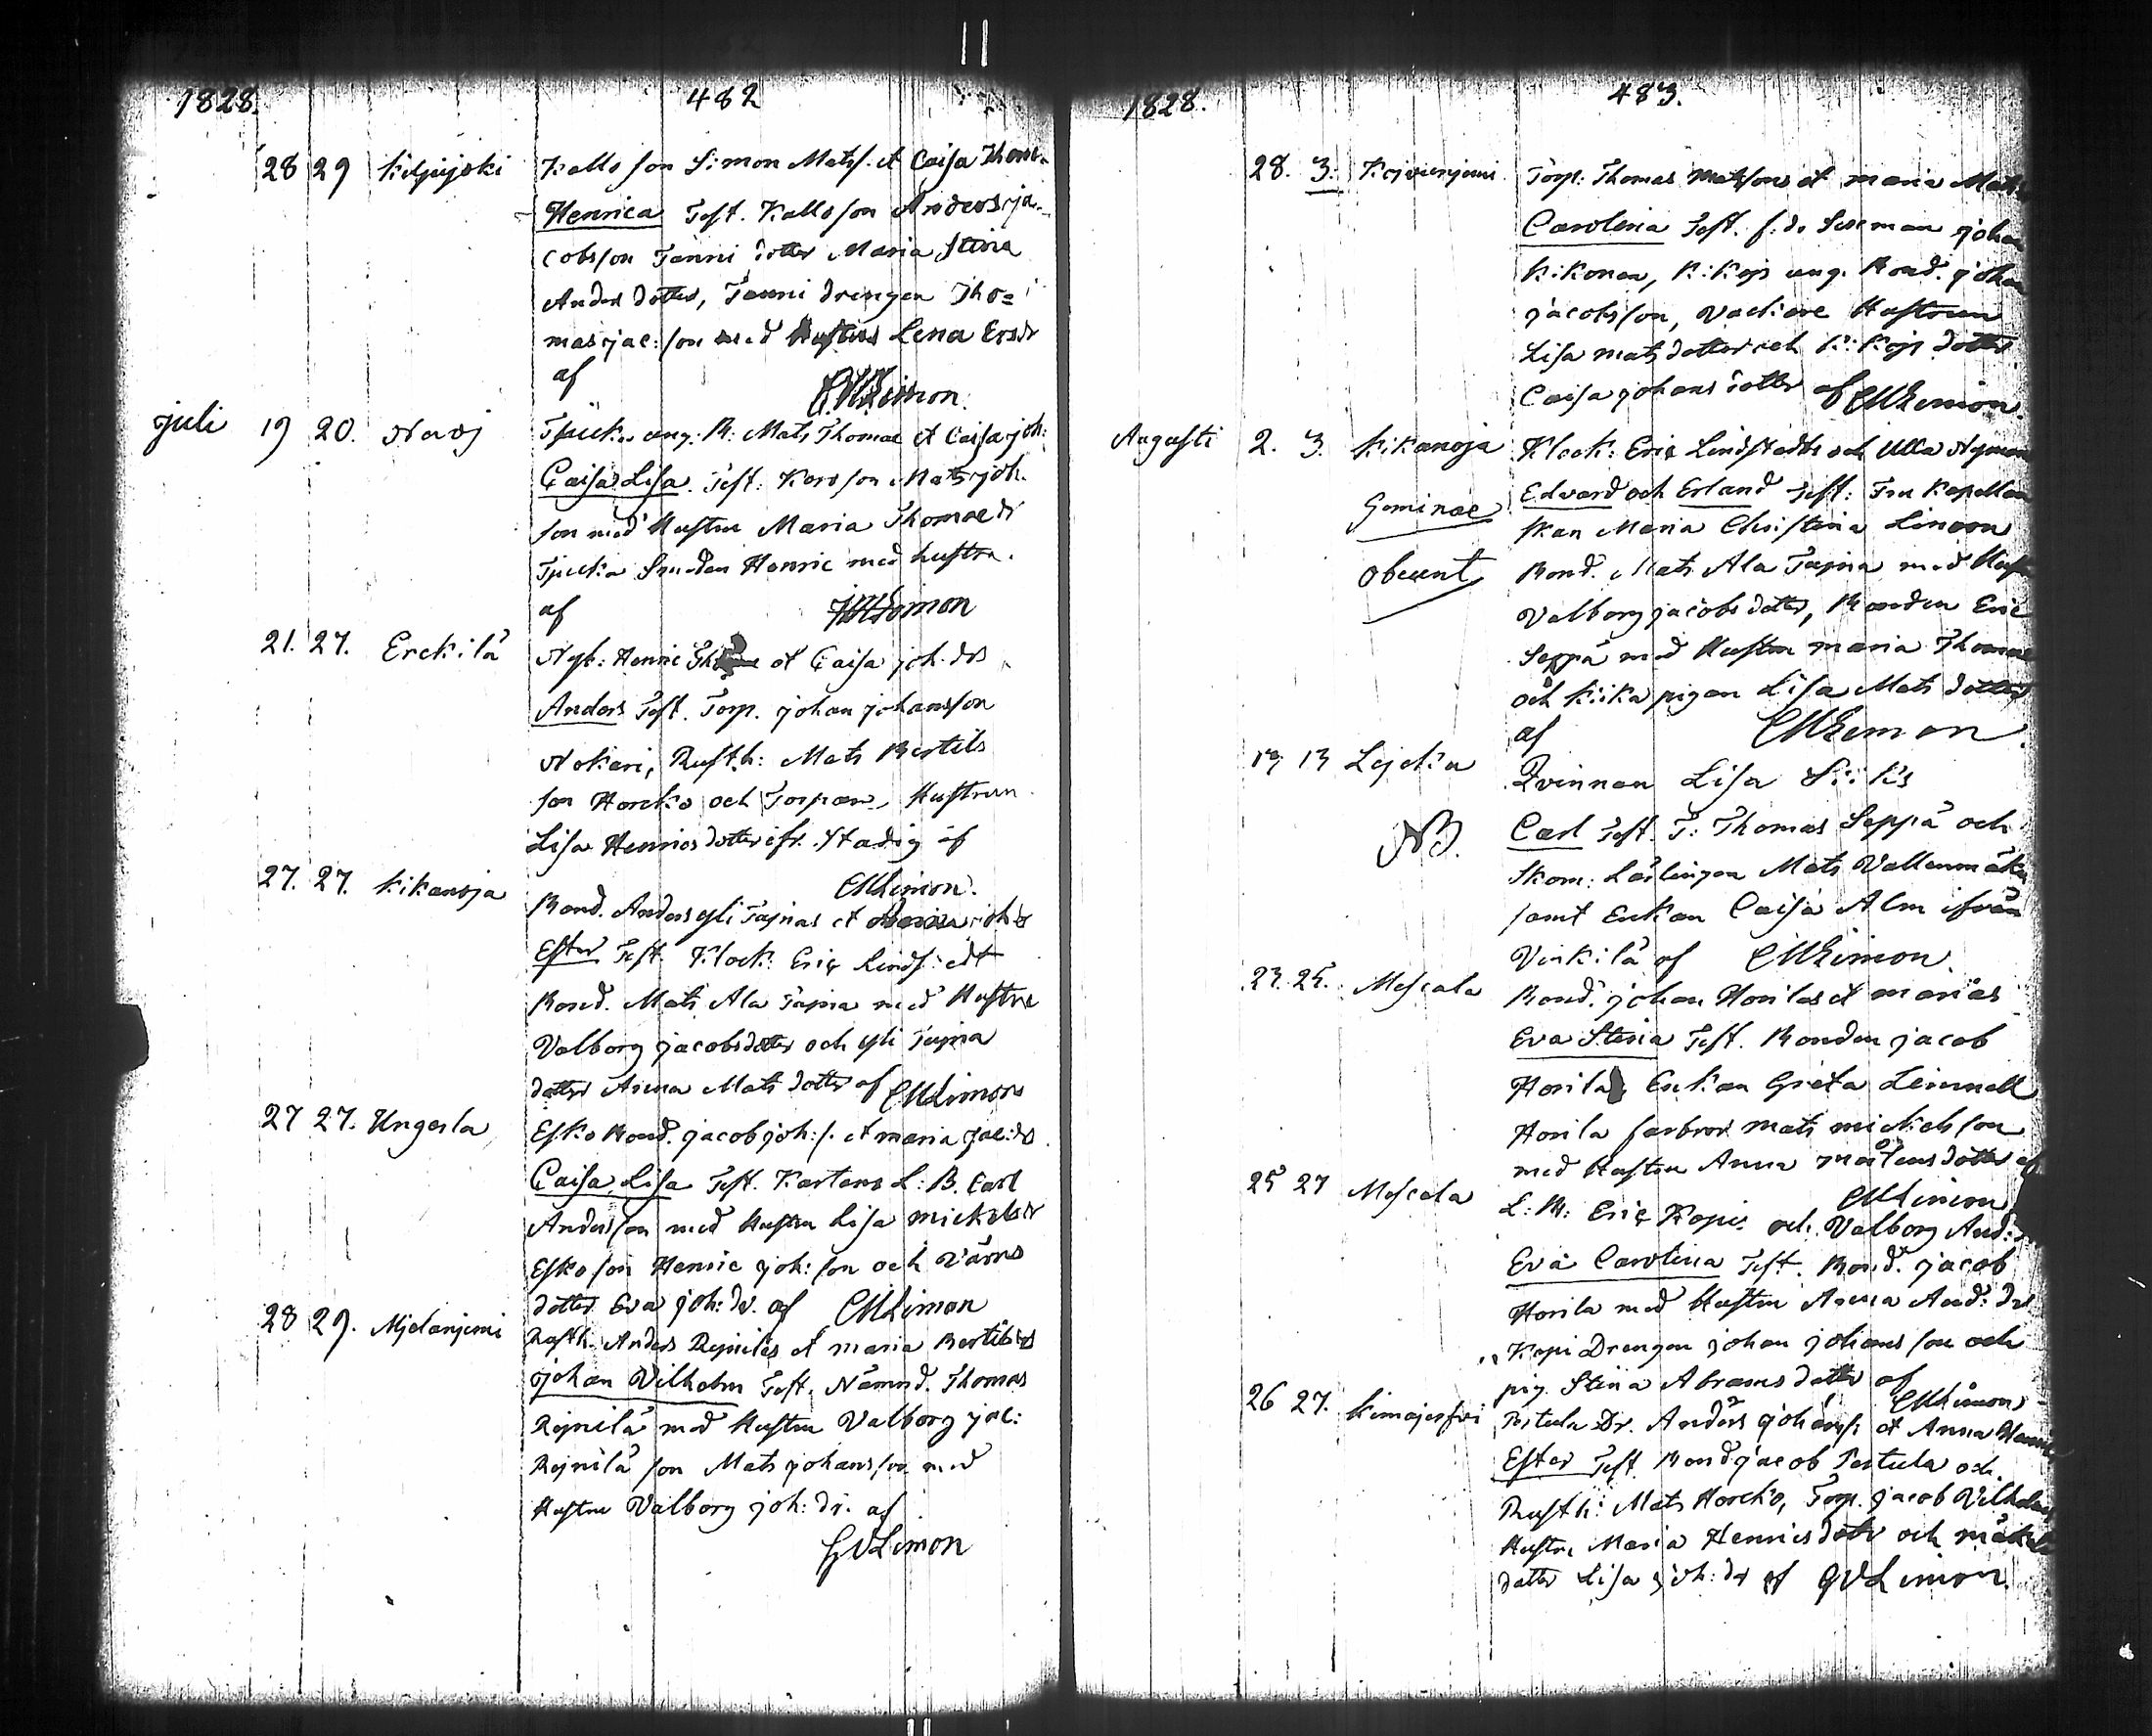 1828. 482
28 29 Kiljujoki Kallo son Simon Mats s. et Caisa Thom
Henrica Test. Kallo son Anders ja-
cobsson Tanni dotter Maria Stina
Anders dotter, Tanni drengen Tho=
mas jac: son med Hustru Lena Ersdr
af
Limon.
juli 19 20. Naroj ung: B: Mats Thomae et Caisa joh:
Caisa Lisa. Test: Karo son Mats joh.
son med Hustru Maria Thomaedr
Henric med hustru.
af Limon
21. 27. Erckilä Nyb: Henric et Caisa joh. drs
Anders Test. Torp. johan johansson
Nokari, Rusth: Mats Bertils
son Horcko och Torpare Hustrun
Lisa Henrics dotter ifr. Stadig af
CMLimon.
27. 27. Kikanoja Bond. Anders yli Tapias et Maria joh. drs
Ester Test. Klock: Eric Lindstedt
Bond. Mats Ala Tapia med Hustru
Valborg jacobsdotter och yli Tapia
dotter Anna Mats dotter af CMLimon
27 27. Ungerla Esko Bond. jacob joh: s. et Maria jac: drs
Caisa Lisa Test. Kartano L: B. Carl
Andersson med Hustru Lisa Mickelsdr
Esko son Henric joh: son och Värns
dotter Eva joh: dr. af CMLimon
28 29. Mjelanjemi Rusth. Anders Rejnilas et Maria Bertils drs
johan Vilhelm Test. Nämnd. Thomas
Rejnilä med Hustru Valborg jac:
Rejnilä son Mats johansson med
Hustru Valborg joh: dr. af
GVLimon
1828. 483.
28. 3. Torp: Thomas Matssons et Maria Mats
Carolina Test. f: d. johan
Kikonen, Kikojs ung. Bond. johan
jacobsson, Hustrun
Lisa Mats dotter och Kikojs dotter
Caisa johans dotter af CMLimon.
Augusti 2. 3. Kikanoja Klock: Eric Lindstedts och Ulla Nyman
Geminae Edvard och Erland Test: Fru Kapellan
skan Maria Christina Limoon
obeunt Bond. Mats Ala Tapia med Hustru
Valborg jacobs dotter, Bonden Eric
Seppä med Hustru Maria Thomae
och Kiika pigan Lisa Mats dotter
af CMLimon.
13 13 Lejcku Qvinnan Lisa Siiks
NB. Carl Test. T: Thomas Seppä och
Skom: Lärlingen Mats Vallenmäki
samt Enkan Caisa Alm ifrån
Virkilä af CMLimon.
23. 25. Moscala Bond. johan Horilas et Marias
Eva Stina Test. Bonden jacob
Horila, Enkan Greta Leinnell
Horila farbror Mats Mickelsson
med Hustru Anna Mårtens dotter af
CMLimon
25 27 Moscala L: B: Eric Kopis och Valborg And:
Eva Carolina Test. Bond. jacob
Horila med Hustru Anna And: dr
Kopi Drengen johan johansson och
pig. Stina Abrams dotter af
CMLimon
26 27. Pertula Dr. Anders johans s: et Anna
Ester Test. Bond jacob Pertula och
Rusth: Mats Horcko, Torp. jacob Vilhelms
Hustru Maria Henrics dotr och
dotter Lisa joh: dr af GVLimon.